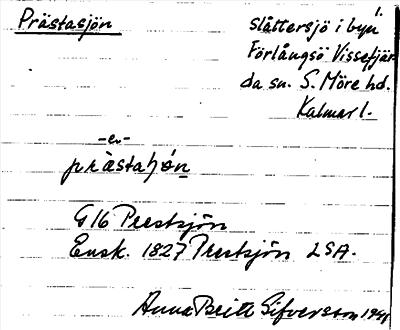 Prästasjön
slåttersjö i byn
Förlångsö Vissefjär
da sn. S. Möre hd.
Kalmar l.
-e-
prästahjón
G16 Prestsjön
Ensk. 1827 Prestsjön LSA.
Anna Britt Sifversson 1941